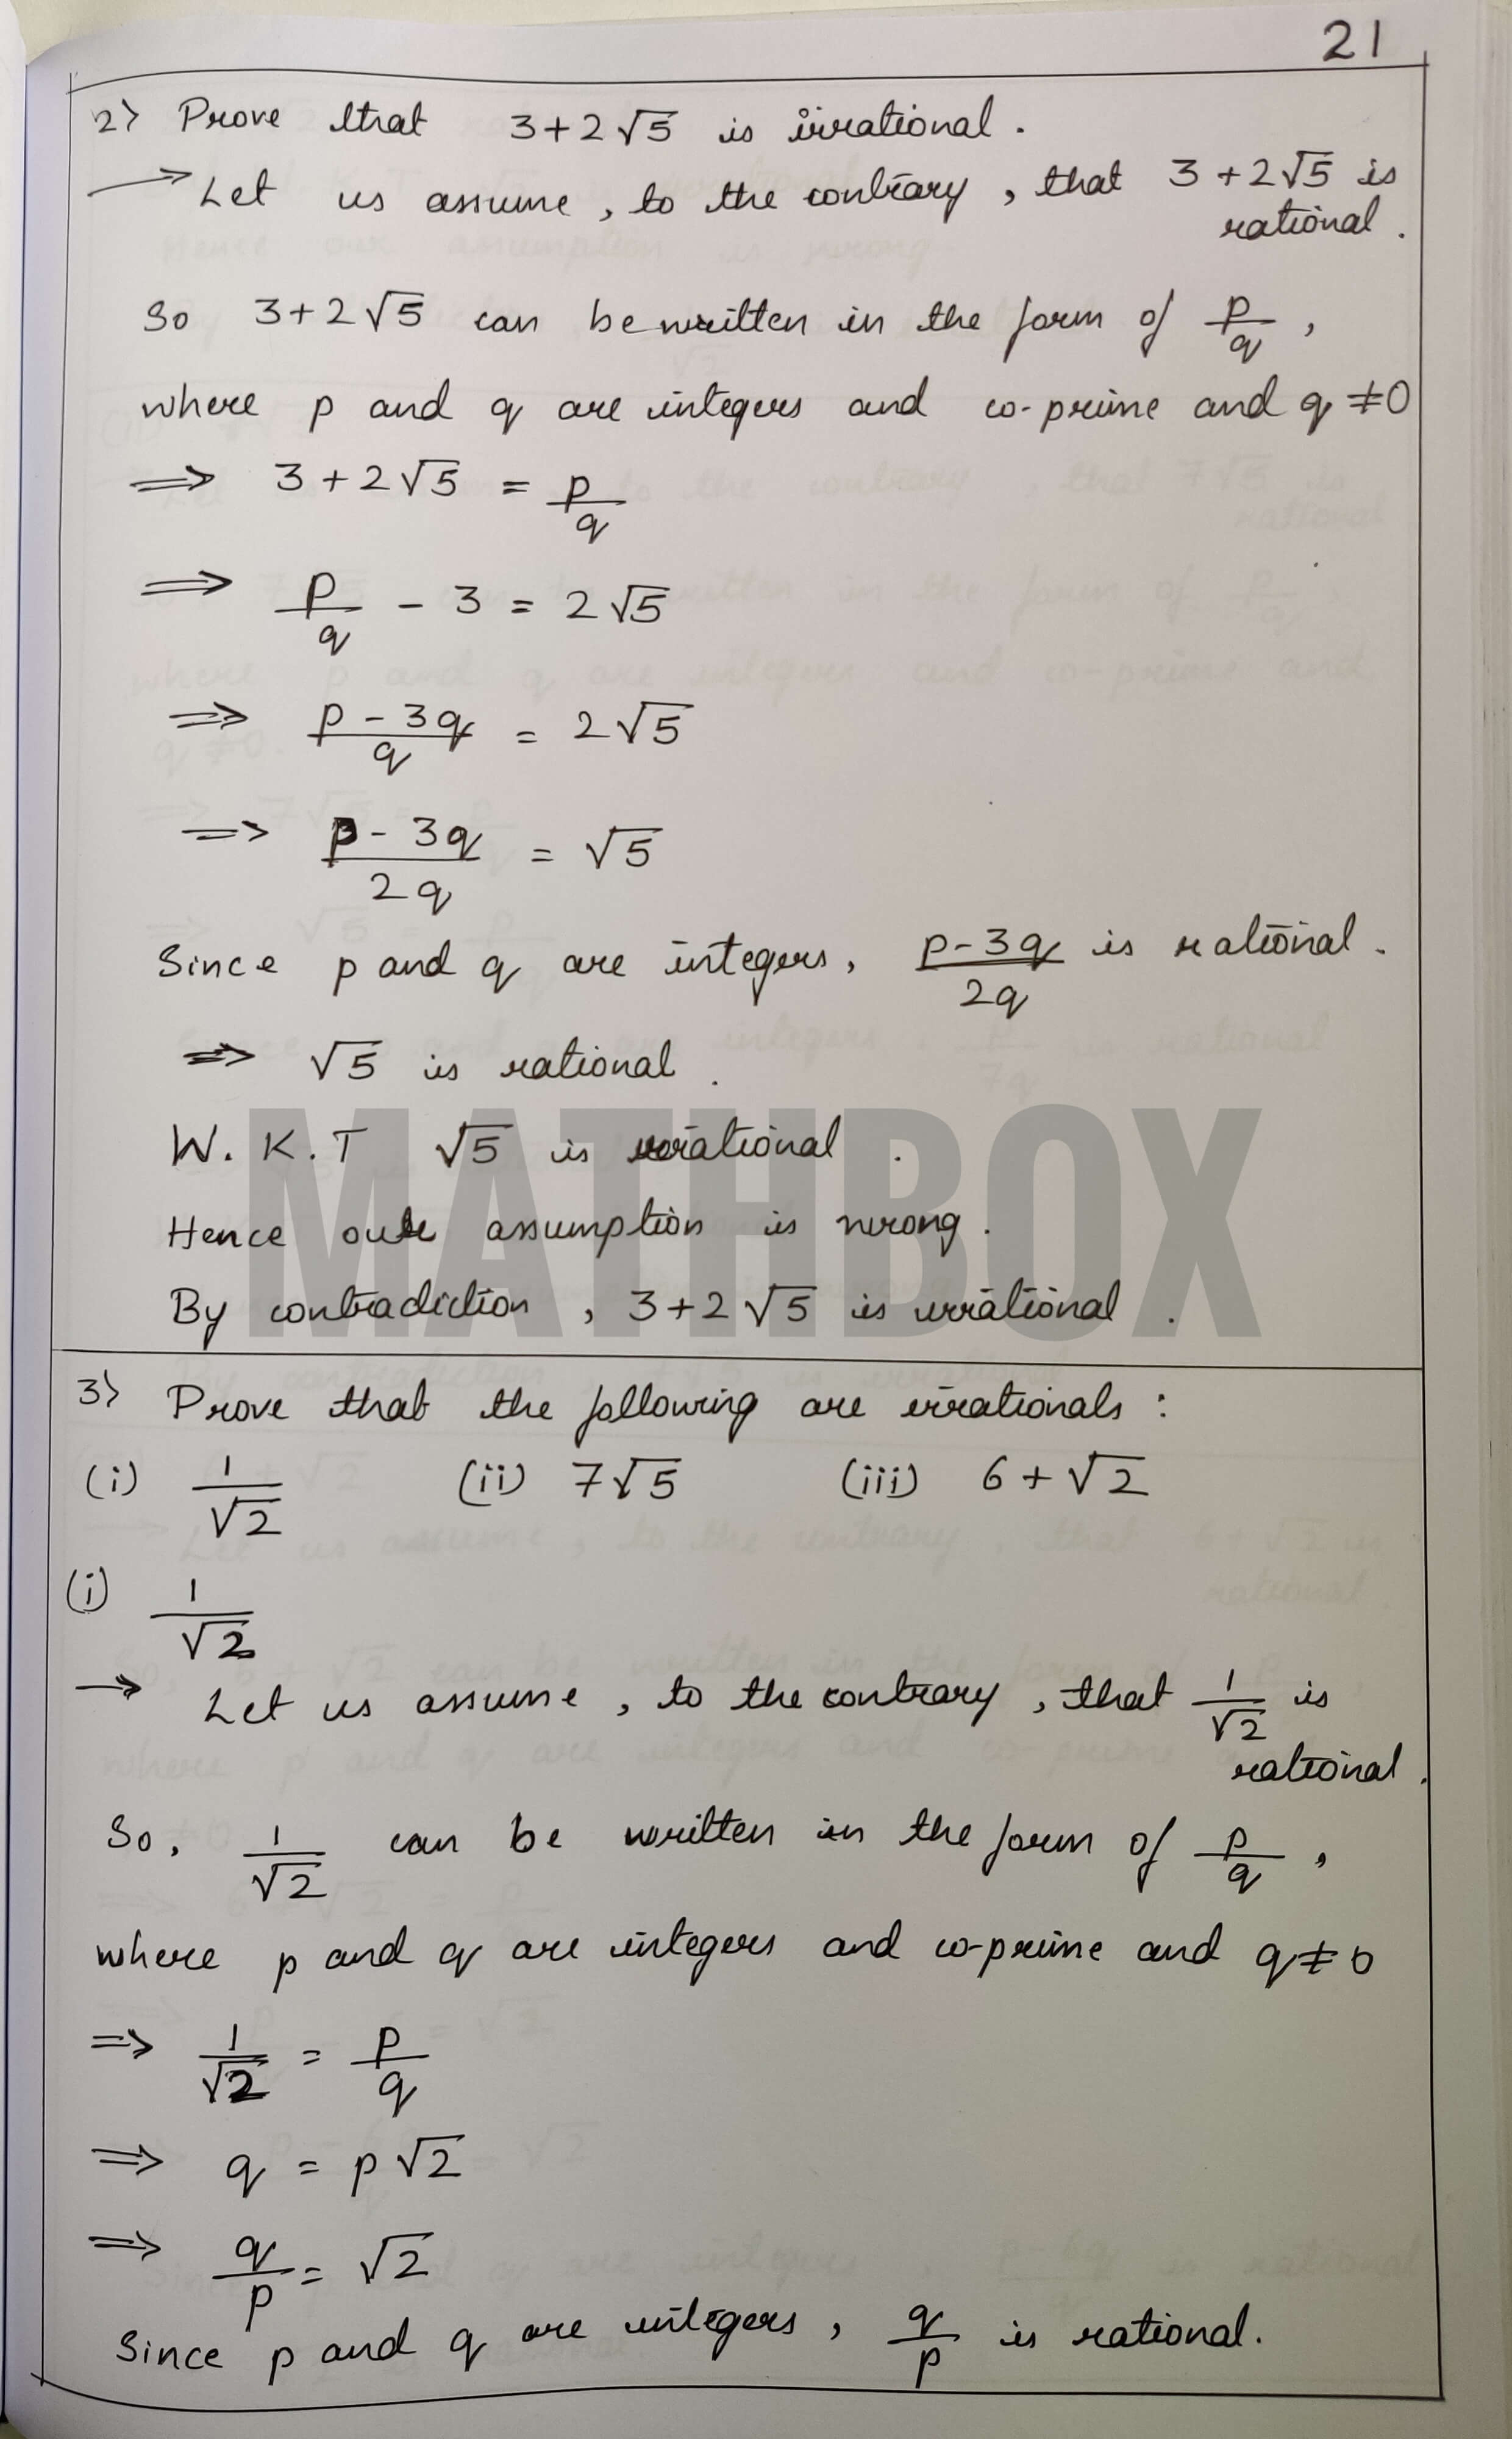 21
2) Prove that 3+2√5 is irrational.
→ Let us assume, to the contrary, that 3+2√5 is
rational.
So 3+2√5 can be written in the form of p/q,
where p and q are integers and co-prime and q≠0
⇒ 3+2√5 = p/q
⇒ p/q - 3 = 2√5
⇒ (p-3q)/q = 2√5
⇒ (p-3q)/2q = √5
Since p and q are integers, (p-3q)/2q is rational.
⇒ √5 is rational.
W.K.T √5 is irrational.
Hence our assumption is wrong.
By contradiction, 3+2√5 is irrational.
MATHBOX
3) Prove that the following are irrationals:
(i) 1/√2 (ii) 7√5 (iii) 6+√2
(i) 1/√2
→ Let us assume, to the contrary, that 1/√2 is
rational.
So, 1/√2 can be written in the form of p/q,
where p and q are integers and co-prime and q≠0
⇒ 1/√2 = p/q
⇒ q = p√2
⇒ q/p = √2
Since p and q are integers, q/p is rational.